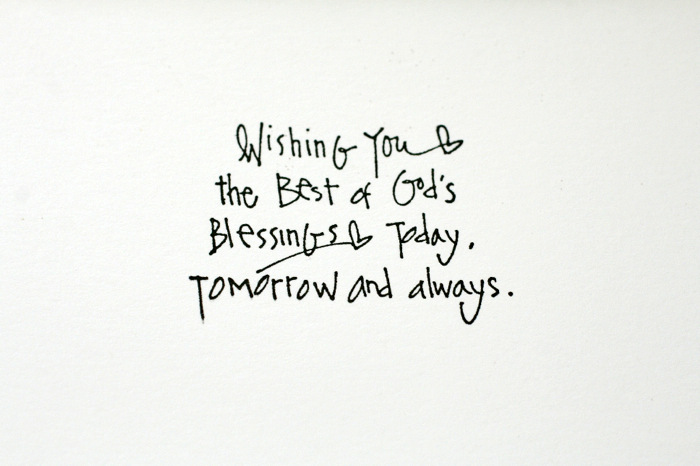 Wishing You
the Best of God's
Blessings Today.
Tomorrow and always.